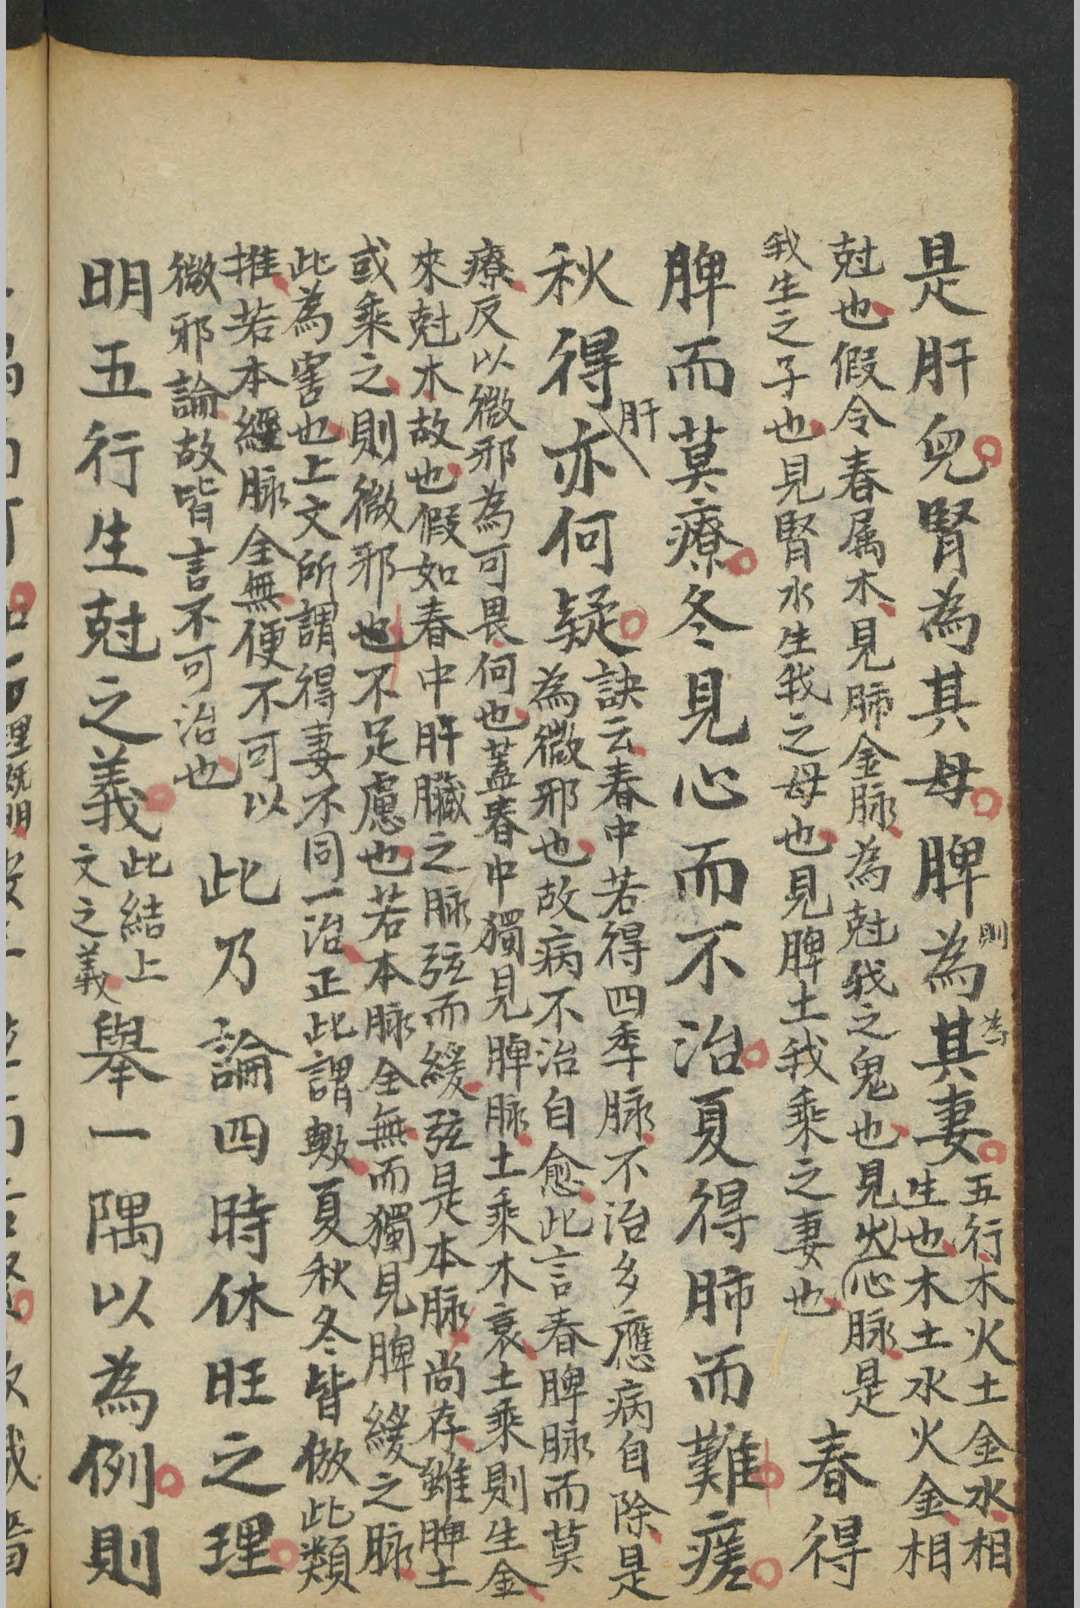 是肝兒腎為其母脾為其妻五行木火土金水相
則為
生也木土水火金相
尅也假令春属木見肺金脉為尅我之鬼也見火心脉是
我生之子也見腎水生我之母也見脾土我乘之妻也
春得
脾而莫療冬見心而不治夏得肺而難瘥
秋得亦何疑訣云春中若得四季脉不治多應病自除是
肝
為微邪也故病不治自愈此言春脾脉而莫
療反以微邪為可畏何也蓋春中獨見脾脉土乘木衰土乘則生金
來尅木故也假如春中肝臟之脉弦而緩弦是本脉尚存雖脾土
或乘之則微邪也不足慮也若本脉全無而獨見脾緩之脉
此為害也上文所謂得妻不同一治正此謂歟夏秋冬皆倣此類
推若本經脉全無便不可以
微邪論故皆言不可治也
此乃論四時休旺之理
明五行生尅之義此結上
文之義
舉一隅以為例則